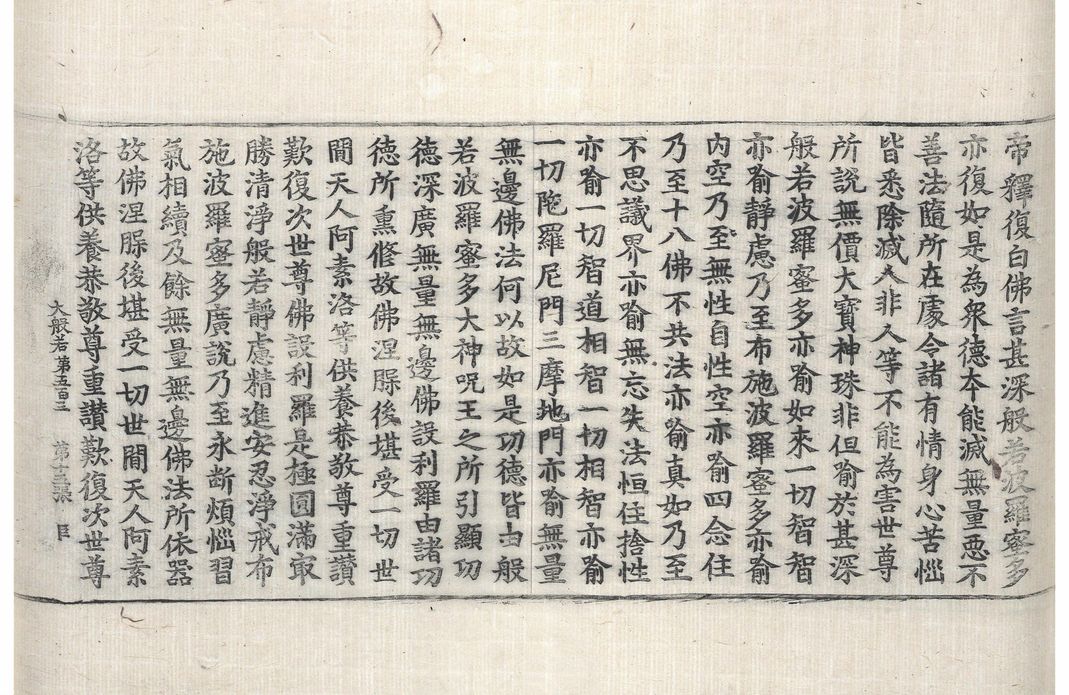 帝釋復白佛言甚深般若波羅蜜多
亦復如是為衆德本能滅無量悪不
善法隨所在處令諸有情身心苦惱
皆悉除滅人非人等不能為害世尊
所說無價大寶神珠非但喻於甚深
般若波羅蜜多亦喻如來一切智智
亦喻靜慮乃至布施波羅蜜多亦喻
内空乃至無性自性空亦喻四念住
乃至十八佛不共法亦喻真如乃至
不思議界亦喻無忘失法恒住捨性
亦喻一切智道相智一切相智亦喻
一切陀羅尼門三摩地門亦喻無量
無邊佛法何以故如是功德皆由般
若波羅蜜多大神呪王之所引顯功
德深廣無量無邊佛設利羅由諸功
德所熏修故佛涅脲後堪受一切世
間天人阿素洛等供養恭敬尊重讚
歎復次世尊佛設利羅是極圓滿㝡
勝清淨般若靜慮精進安忍淨戒布
施波羅蜜多廣說乃至永断煩惱習
氣相續及餘無量無邊佛法所依器
故佛涅脲後堪受一切世間天人阿素
大般若第五百三 第十三張
洛等供養恭敬尊重讚歎復次世尊